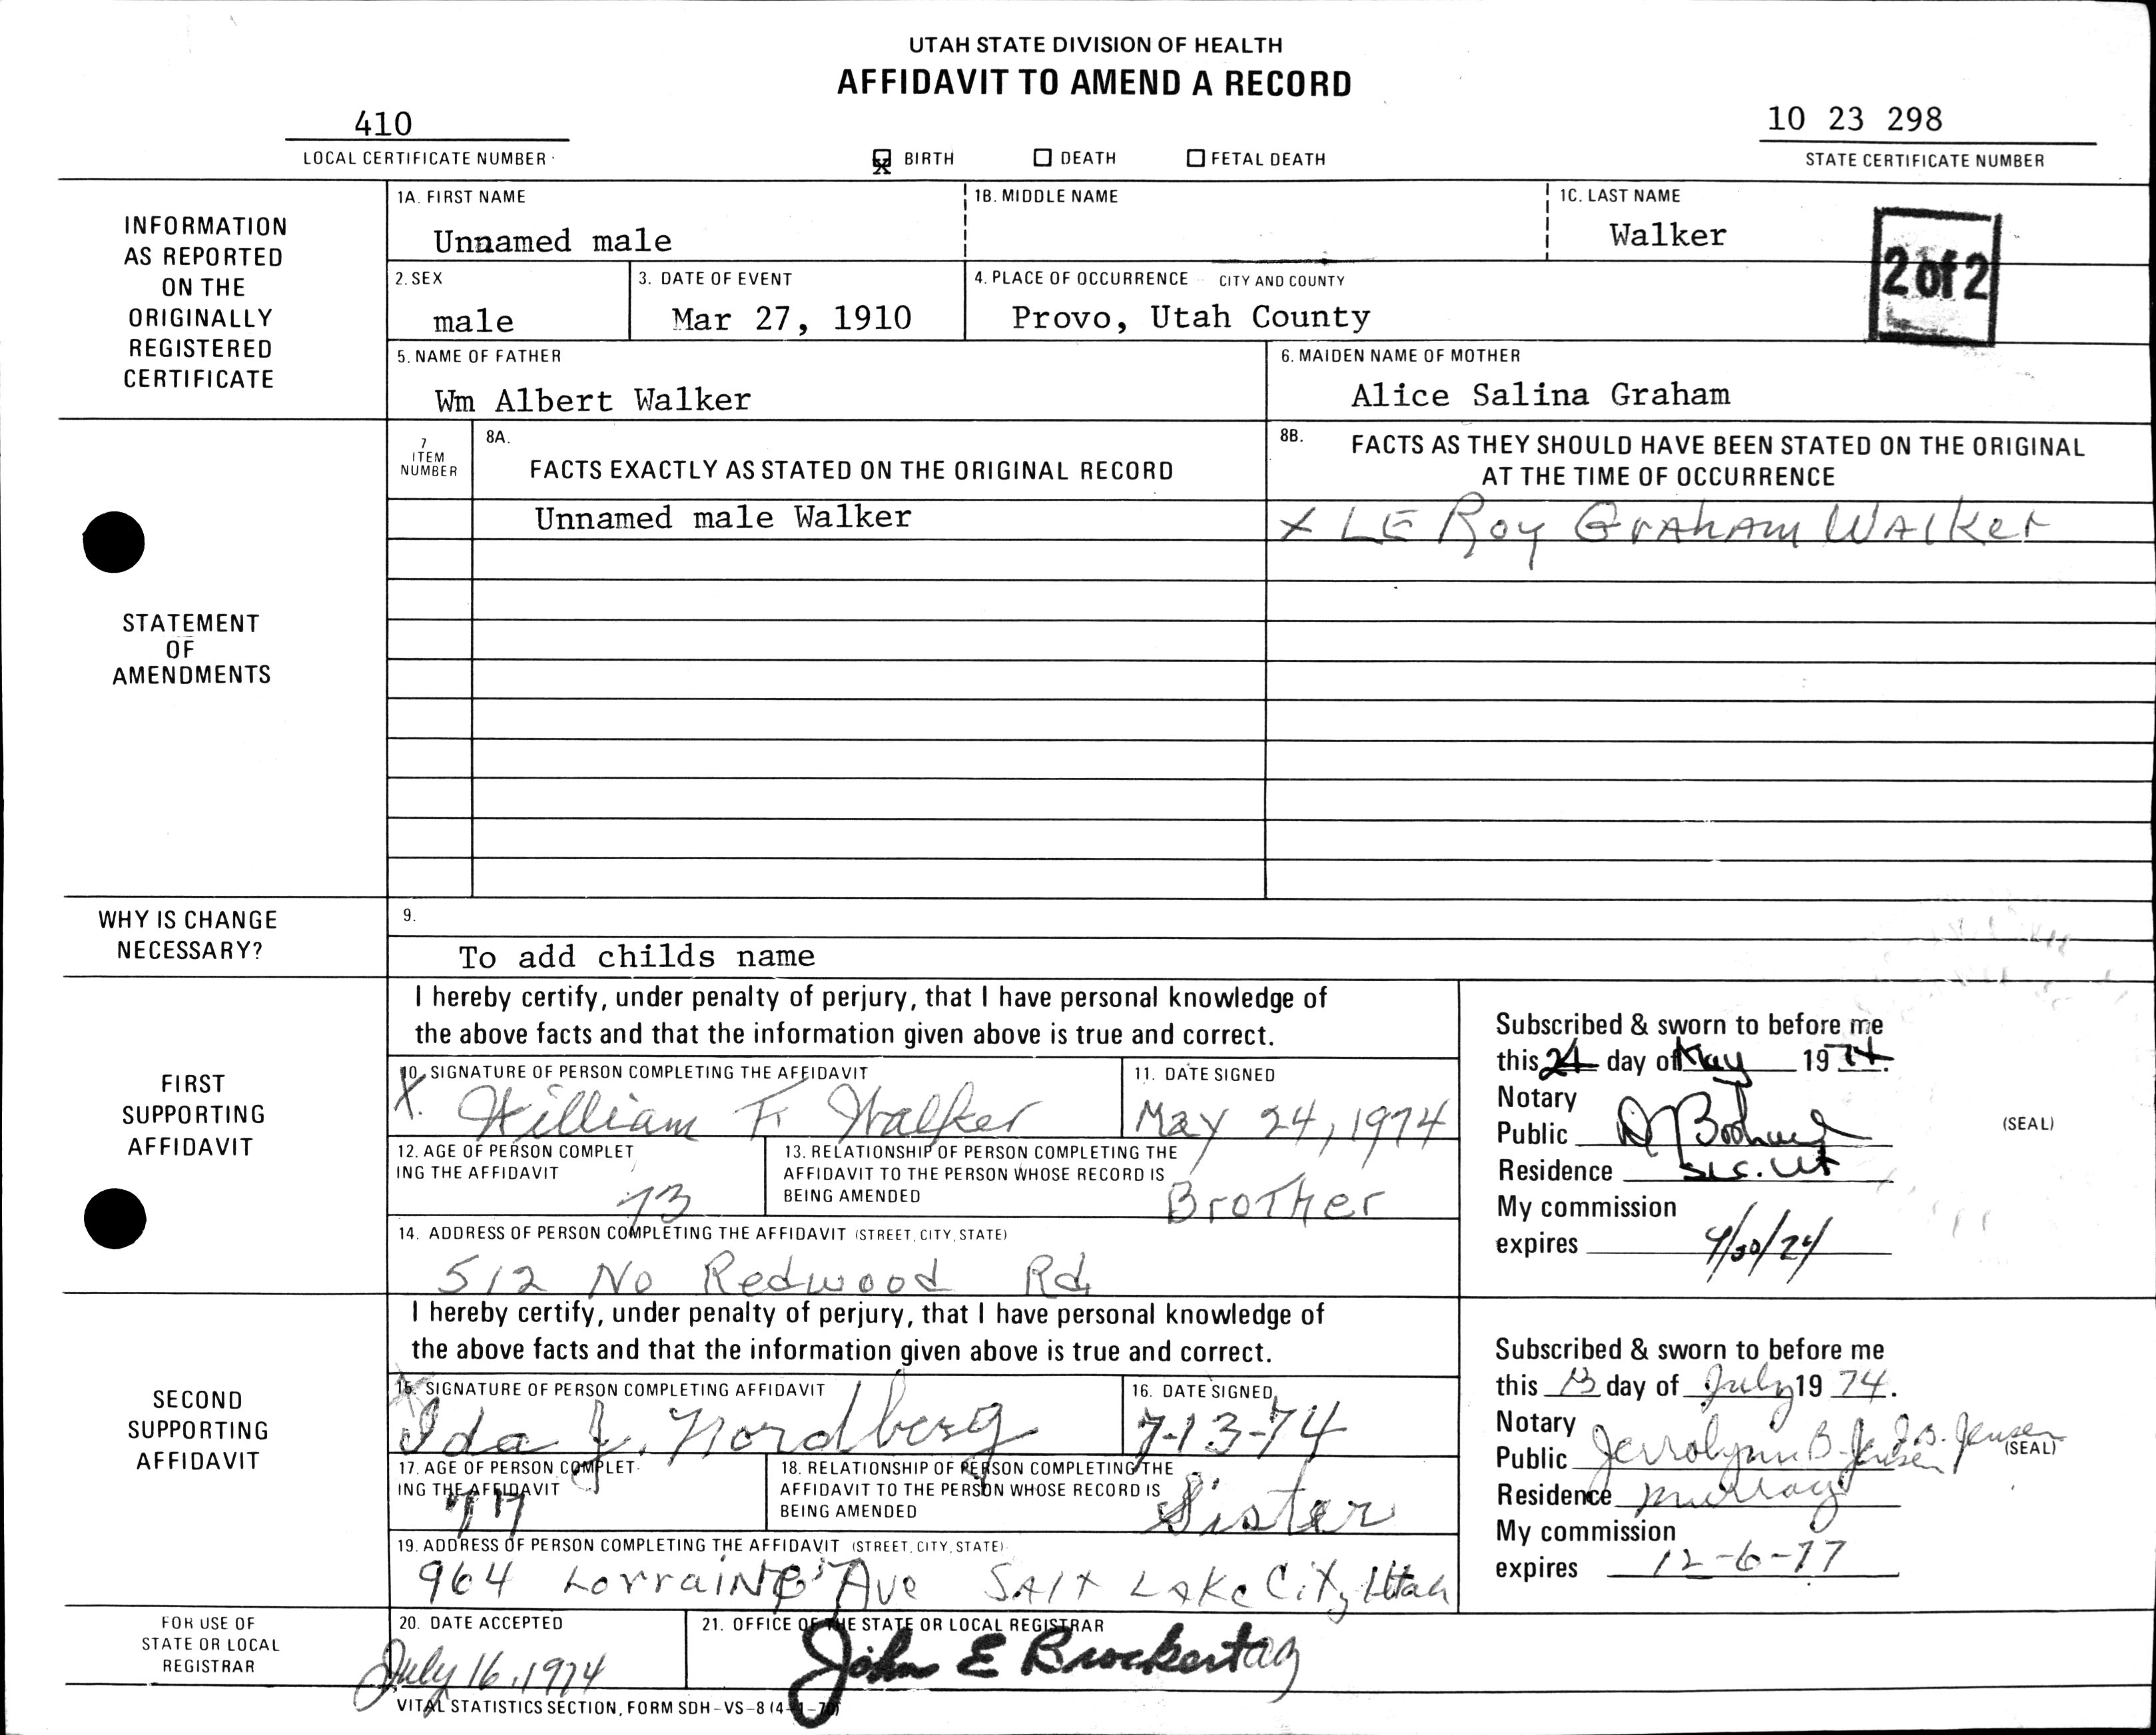 UTAH STATE DIVISION OF HEALTH
AFFIDAVIT TO AMEND A RECORD
410
LOCAL CERTIFICATE NUMBER
X BIRTH DEATH FETAL DEATH
10 23 298
STATE CERTIFICATE NUMBER
INFORMATION
AS REPORTED
ON THE
ORIGINALLY
REGISTERED
CERTIFICATE
1A. FIRST NAME
Unnamed male
1B. MIDDLE NAME
1C. LAST NAME
Walker
2 of 2
2. SEX
male
3. DATE OF EVENT
Mar 27, 1910
4. PLACE OF OCCURRENCE CITY AND COUNTY
Provo, Utah County
5. NAME OF FATHER
Wm Albert Walker
6. MAIDEN NAME OF MOTHER
Alice Salina Graham
STATEMENT
OF
AMENDMENTS
7
ITEM
NUMBER
8A.
FACTS EXACTLY AS STATED ON THE ORIGINAL RECORD
8B. FACTS AS THEY SHOULD HAVE BEEN STATED ON THE ORIGINAL
AT THE TIME OF OCCURRENCE
Unnamed male Walker
X LE Roy GrAhAm WAlker
WHY IS CHANGE
NECESSARY?
9.
To add childs name
FIRST
SUPPORTING
AFFIDAVIT
I hereby certify, under penalty of perjury, that I have personal knowledge of
the above facts and that the information given above is true and correct.
10. SIGNATURE OF PERSON COMPLETING THE AFFIDAVIT
X. William F. Walker
11. DATE SIGNED
May 24, 1974
12. AGE OF PERSON COMPLET
ING THE AFFIDAVIT
73
13. RELATIONSHIP OF PERSON COMPLETING THE
AFFIDAVIT TO THE PERSON WHOSE RECORD IS
BEING AMENDED
Brother
14. ADDRESS OF PERSON COMPLETING THE AFFIDAVIT (STREET, CITY, STATE)
512 No Redwood Rd.
Subscribed & sworn to before me
this 24 day of May 1974.
Notary
Public
(SEAL)
Residence SLC. Ut
My commission
expires
SECOND
SUPPORTING
AFFIDAVIT
I hereby certify, under penalty of perjury, that I have personal knowledge of
the above facts and that the information given above is true and correct.
15. SIGNATURE OF PERSON COMPLETING AFFIDAVIT
Ida J. Nordberg
16. DATE SIGNED
7-13-74
17. AGE OF PERSON COMPLET-
ING THE AFFIDAVIT
77
18. RELATIONSHIP OF PERSON COMPLETING THE
AFFIDAVIT TO THE PERSON WHOSE RECORD IS
BEING AMENDED
Sister
19. ADDRESS OF PERSON COMPLETING THE AFFIDAVIT (STREET, CITY, STATE)
964 Lorraine Ave Salt Lake City, Utah
Subscribed & sworn to before me
this 13 day of July 1974.
Notary
Public Jerrolynn B. Jensen J.B. Jensen
(SEAL)
Residence Murray
My commission
expires 12-6-77
FOR USE OF
STATE OR LOCAL
REGISTRAR
20. DATE ACCEPTED
July 16, 1974
21. OFFICE OF THE STATE OR LOCAL REGISTRAR
John E Brockert
VITAL STATISTICS SECTION, FORM SDH-VS-8